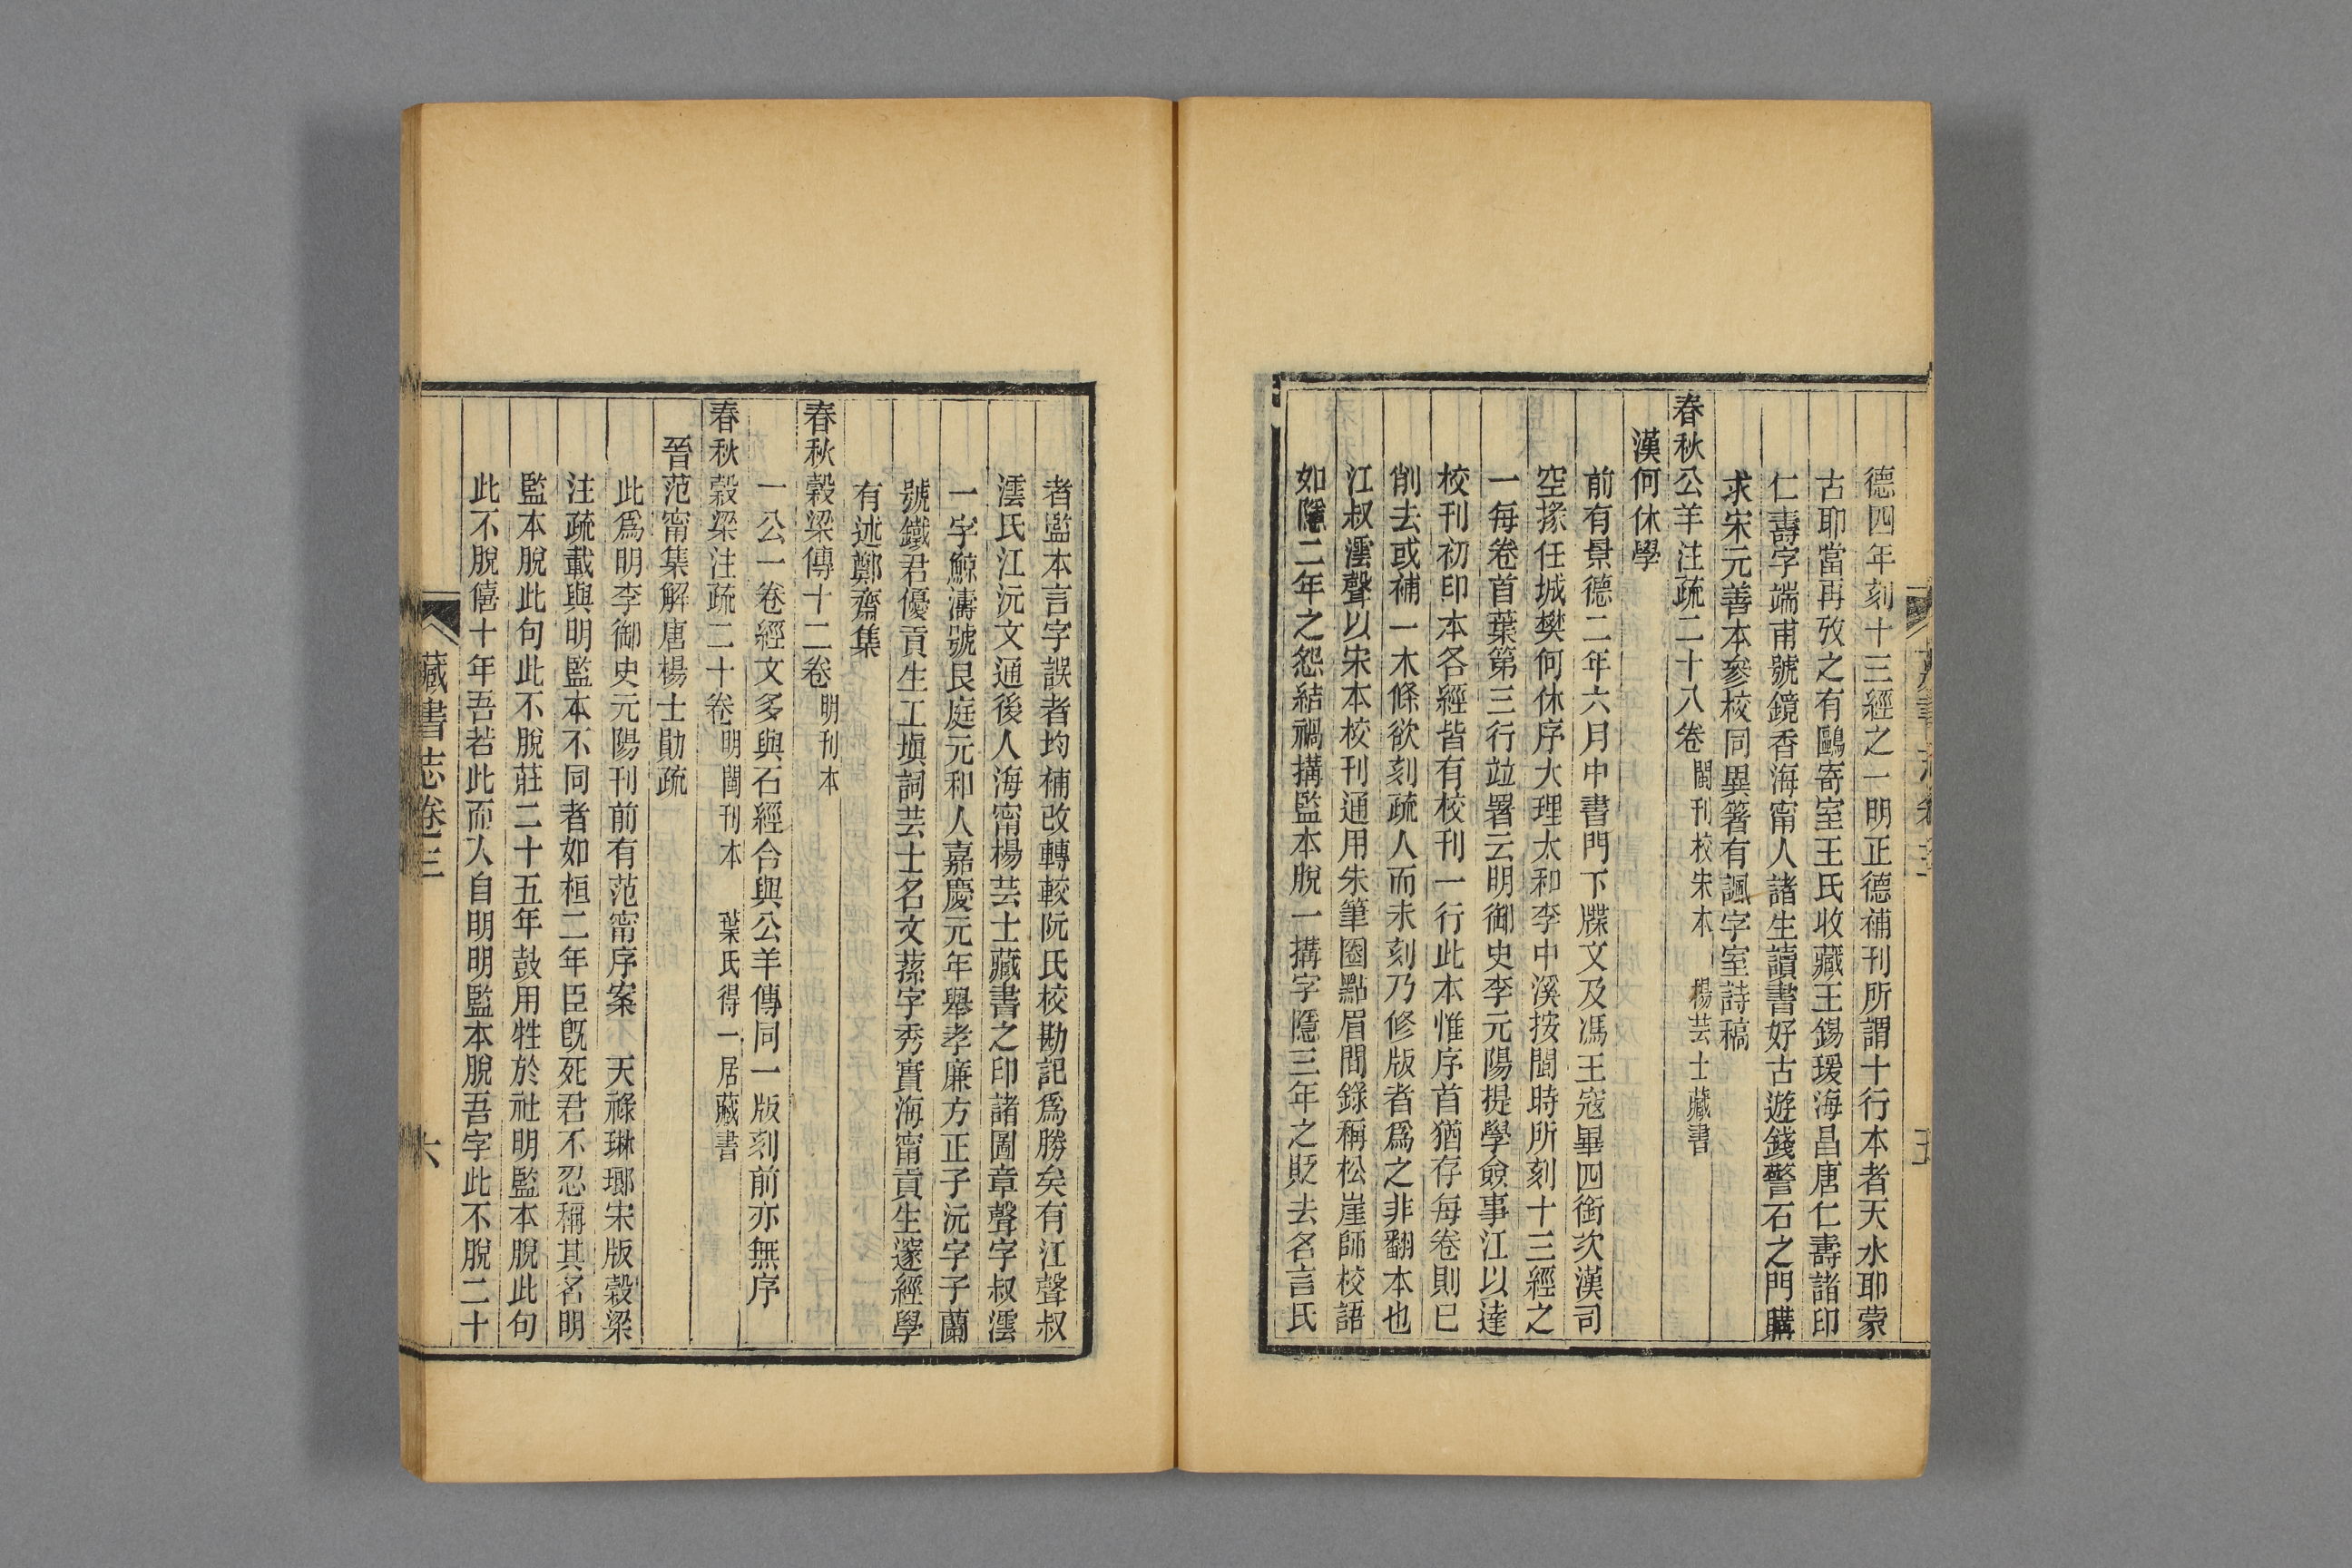 德四年刻十三經之一明正德補刊所謂十行本者天水耶蒙
古耶當再攷之有鷗寄室王氏收藏王錫瑗海昌唐仁壽諸印
仁壽字端甫號鏡香海甯人諸生讀書好古遊錢警石之門購
求宋元善本參校同異箸有諷字室詩稿
春秋公羊注疏二十八卷 閩刊校宋本 楊芸士藏書
漢何休學
前有景德二年六月中書門下牒文及馮王寇畢四銜次漢司
空掾任城樊何休序大理太和李中溪按閩時所刻十三經之
一每卷首葉第三行竝署云明御史李元陽提學僉事江以達
校刊初印本各經皆有校刊一行此本惟序首猶存每卷則已
削去或補一木條欲刻疏人而未刻乃修版者爲之非翻本也
江叔澐聲以宋本校刊通用朱筆圈點眉間錄稱松崖師校語
如隱二年之怨結禍搆監本脫一搆字隱三年之貶去名言氏
者監本言字誤者均補改轉較阮氏校勘記爲勝矣有江聲叔
澐氏江沅文通後人海甯楊芸士藏書之印諸圖章聲字叔澐
一字鯨濤號艮庭元和人嘉慶元年舉孝廉方正子沅字子蘭
號鐵君優貢生工塡詞芸士名文蓀字秀實海甯貢生邃經學
有述鄭齋集
春秋穀梁傳十二卷 明刊本
一公一卷經文多與石經合與公羊傳同一版刻前亦無序
春秋穀梁注疏二十卷 明閩刊本 葉氏得一居藏書
晉范甯集解唐楊士勛疏
此爲明李御史元陽刊前有范甯序案 天祿琳瑯宋版穀梁
注疏載與明監本不同者如桓二年臣旣死君不忍稱其名明
監本脫此句此不脫莊二十五年鼓用牲於社明監本脫此句
此不脫僖十年吾若此而入自明明監本脫吾字此不脫二十
藏書志卷三
六